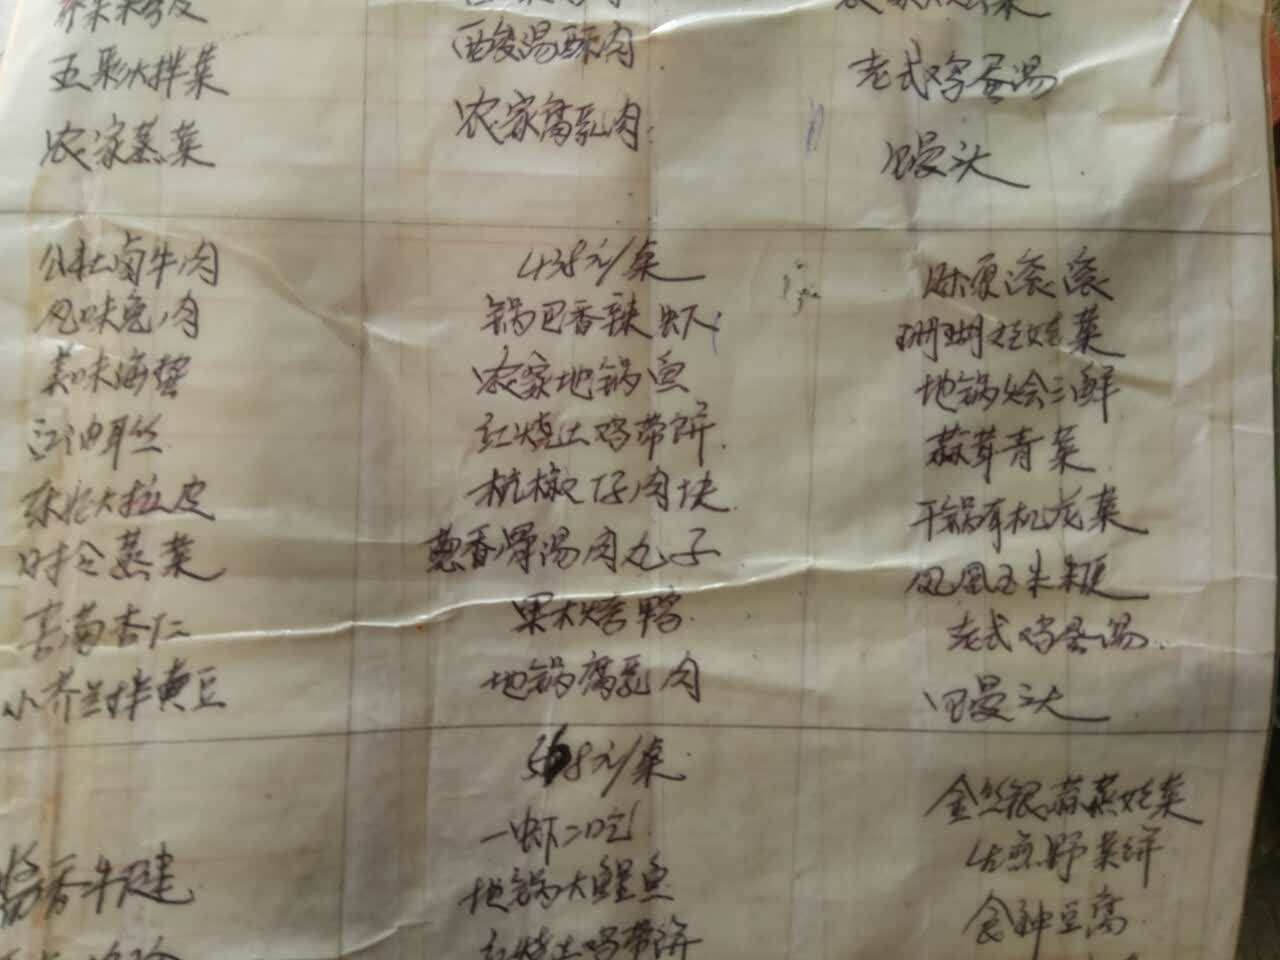 五彩大拌菜
农家蒸菜
酸汤酥肉
农家腐乳肉
老式鸡蛋汤
馒头
公社卤牛肉
风味兔肉
美味海蜇
红油耳丝
东北大拉皮
时令蒸菜
苦菊杏仁
小芥兰拌黄豆
438元/桌
锅巴香辣虾
农家地锅鱼
红烧土鸡带饼
杭椒仔肉块
葱香骨汤肉丸子
果木烤鸭
地锅腐乳肉
财源滚滚
珊瑚娃娃菜
地锅烩三鲜
蒜茸青菜
干锅有机花菜
凤凰玉米粳
老式鸡蛋汤
馒头
酱香牛腱
568元/桌
一虾二吃
地锅大鲤鱼
红烧土鸡带饼
金丝银蒜蒸娃菜
生煎野菜饼
食神豆腐